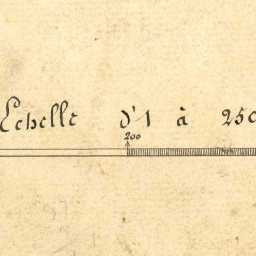 Echelle d'1 à 250
200